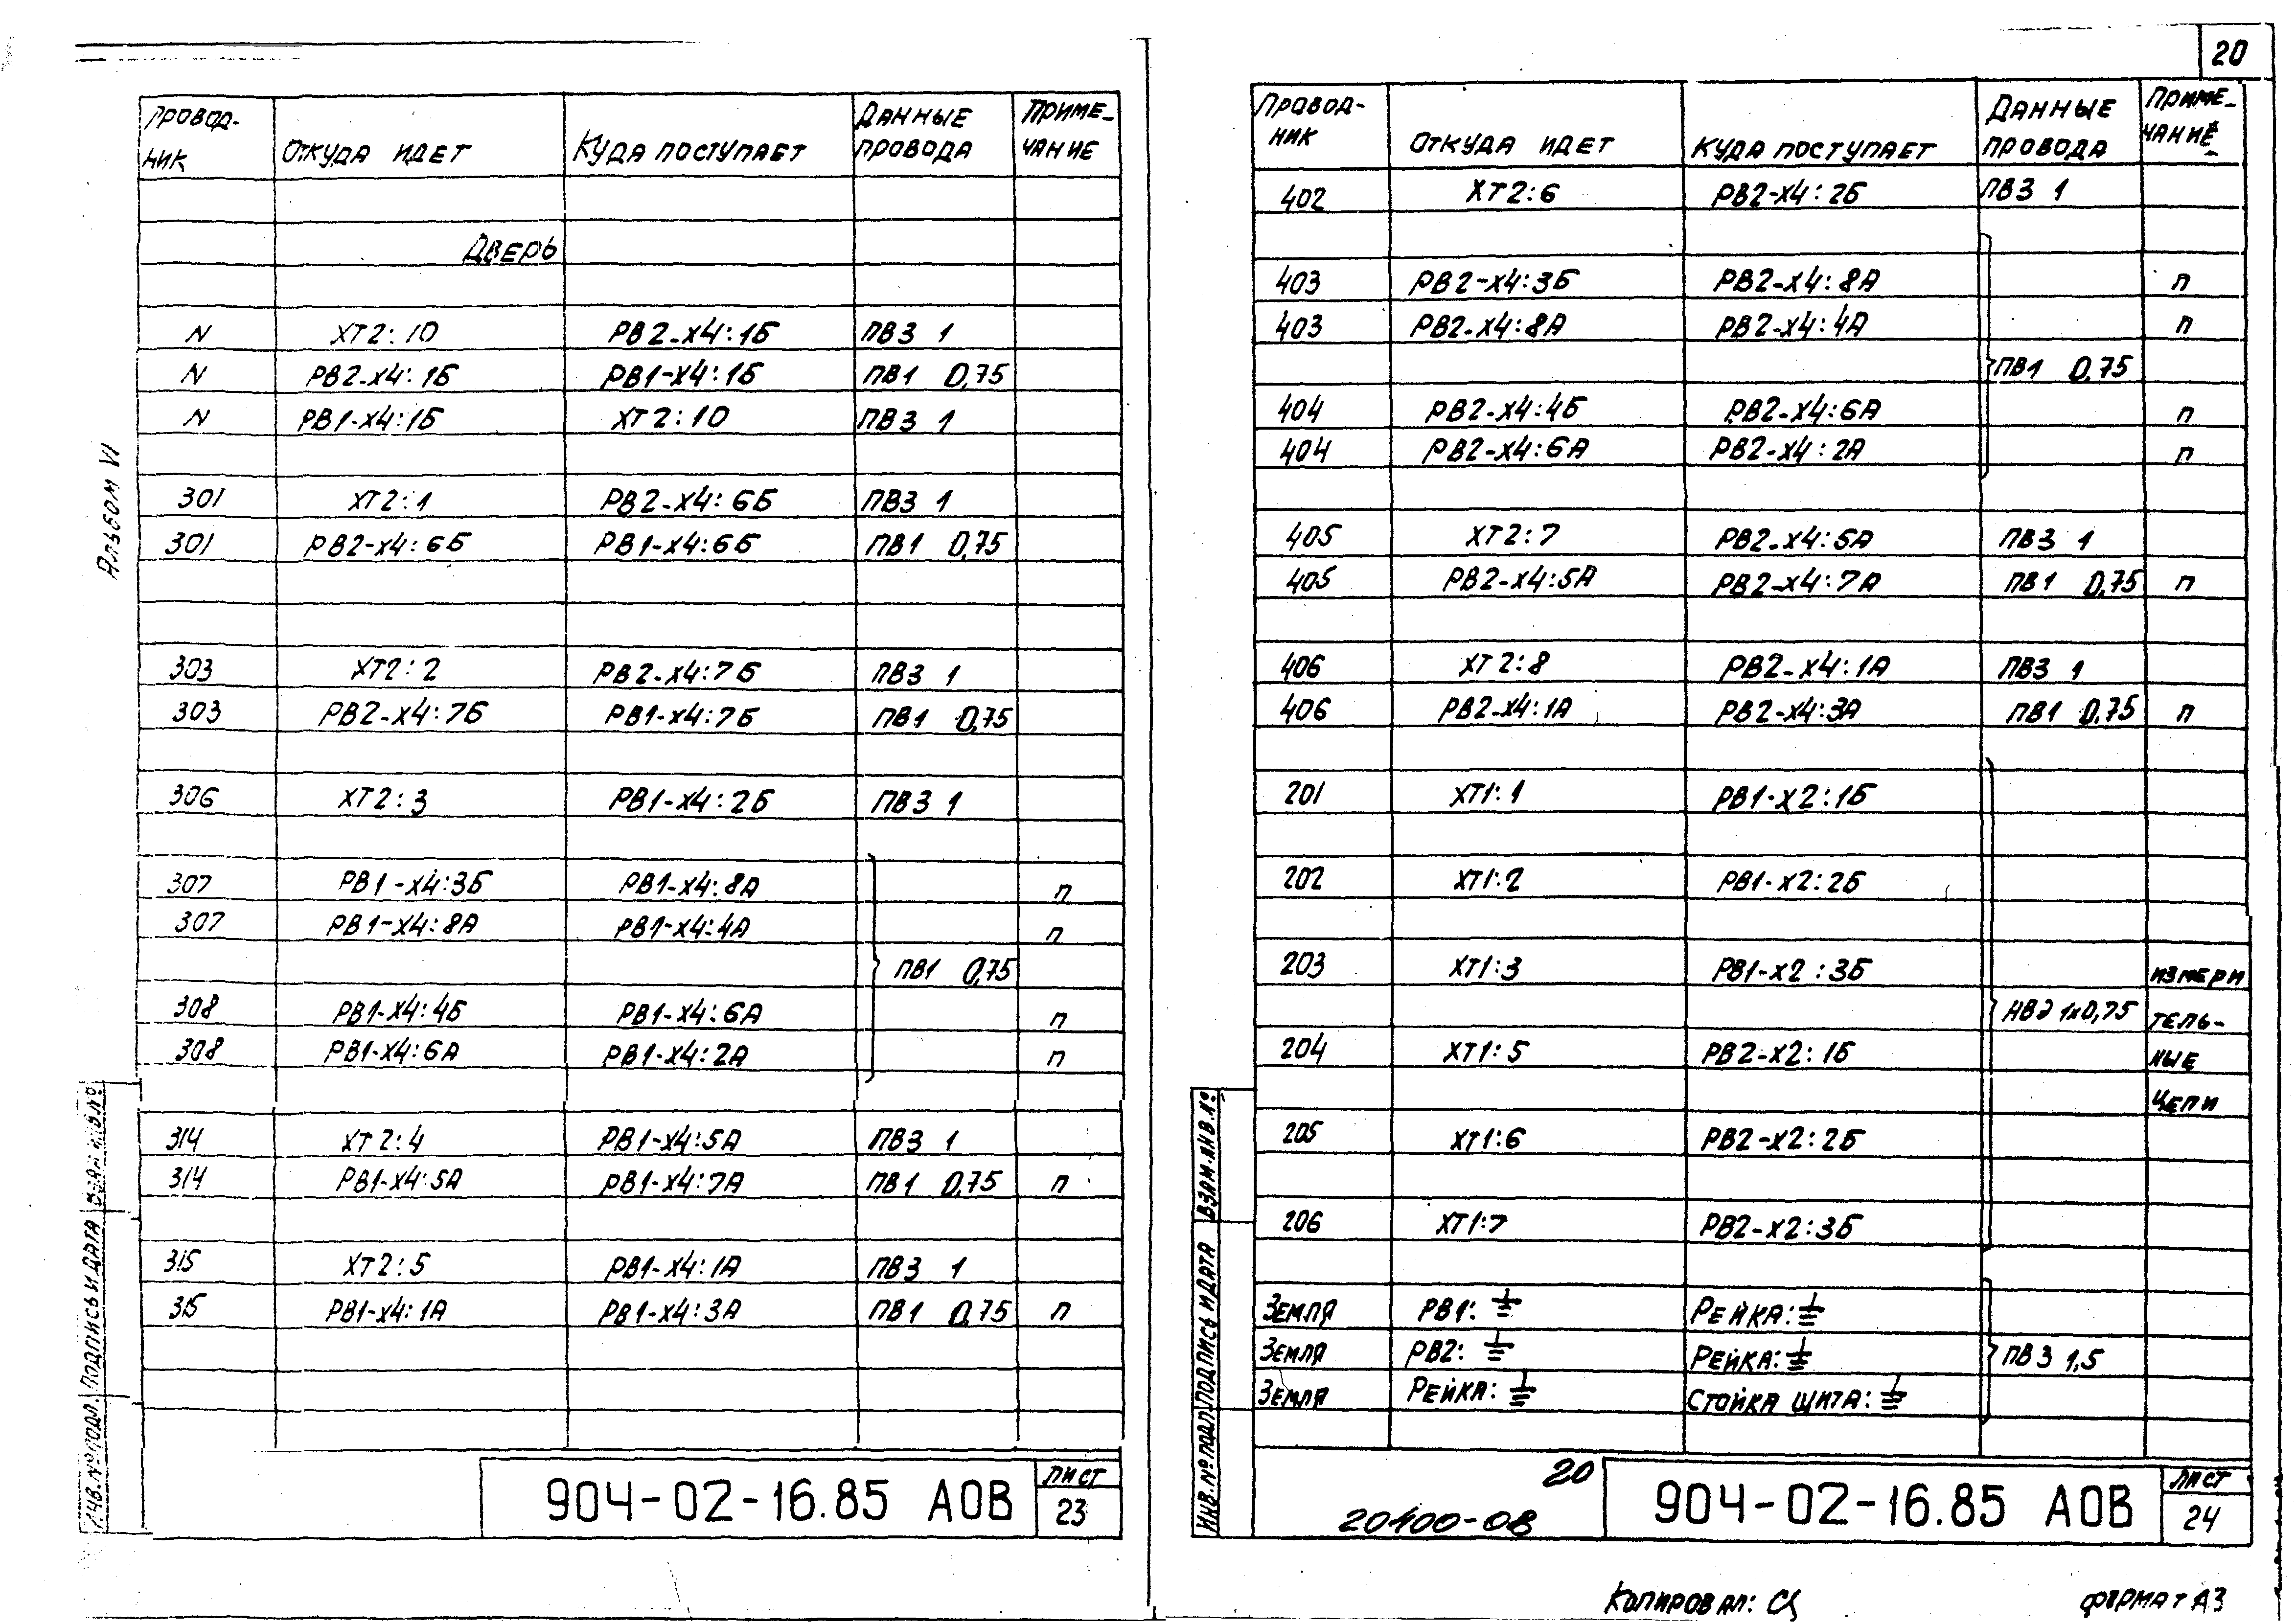 Альбом VI
Провод-
ник
Откуда идет
Куда поступает
Данные
провода
Приме-
чание
Дверь
N ХТ2:10 РВ2-Х4:1Б ПВ3 1
N РВ2-Х4:1Б РВ1-Х4:1Б ПВ1 0,75
N РВ1-Х4:1Б ХТ2:10 ПВ3 1
301 ХТ2:1 РВ2-Х4:6Б ПВ3 1
301 РВ2-Х4:6Б РВ1-Х4:6Б ПВ1 0,75
303 ХТ2:2 РВ2-Х4:7Б ПВ3 1
303 РВ2-Х4:7Б РВ1-Х4:7Б ПВ1 0,75
306 ХТ2:3 РВ1-Х4:2Б ПВ3 1
307 РВ1-Х4:3Б РВ1-Х4:8А п
307 РВ1-Х4:8А РВ1-Х4:4А п
ПВ1 0,75
308 РВ1-Х4:4Б РВ1-Х4:6А п
308 РВ1-Х4:6А РВ1-Х4:2А п
314 ХТ2:4 РВ1-Х4:5А ПВ3 1
314 РВ1-Х4:5А РВ1-Х4:7А ПВ1 0,75 п
315 ХТ2:5 РВ1-Х4:1А ПВ3 1
315 РВ1-Х4:1А РВ1-Х4:3А ПВ1 0,75 п
Инв.№подл. Подпись и дата Взам.инв.№
904-02-16.85 АОВ
Лист
23
20
Провод-
ник
Откуда идет
Куда поступает
Данные
провода
Приме-
чание
402 ХТ2:6 РВ2-Х4:2Б ПВ3 1
403 РВ2-Х4:3Б РВ2-Х4:8А п
403 РВ2-Х4:8А РВ2-Х4:4А п
ПВ1 0,75
404 РВ2-Х4:4Б РВ2-Х4:6А п
404 РВ2-Х4:6А РВ2-Х4:2А п
405 ХТ2:7 РВ2-Х4:5А ПВ3 1
405 РВ2-Х4:5А РВ2-Х4:7А ПВ1 0,75 п
406 ХТ2:8 РВ2-Х4:1А ПВ3 1
406 РВ2-Х4:1А РВ2-Х4:3А ПВ1 0,75 п
201 ХТ1:1 РВ1-Х2:1Б
202 ХТ1:2 РВ1-Х2:2Б
203 ХТ1:3 РВ1-Х2:3Б измери
НВЭ 1х0,75 тель-
204 ХТ1:5 РВ2-Х2:1Б ные
цепи
205 ХТ1:6 РВ2-Х2:2Б
206 ХТ1:7 РВ2-Х2:3Б
Земля РВ1:⏚ Рейка:⏚
Земля РВ2:⏚ Рейка:⏚ ПВ3 1,5
Земля Рейка:⏚ Стойка щита:⏚
Инв.№подл. Подпись и дата Взам.инв.№
20
20400-08
904-02-16.85 АОВ
Лист
24
Копировал:
Формат А3